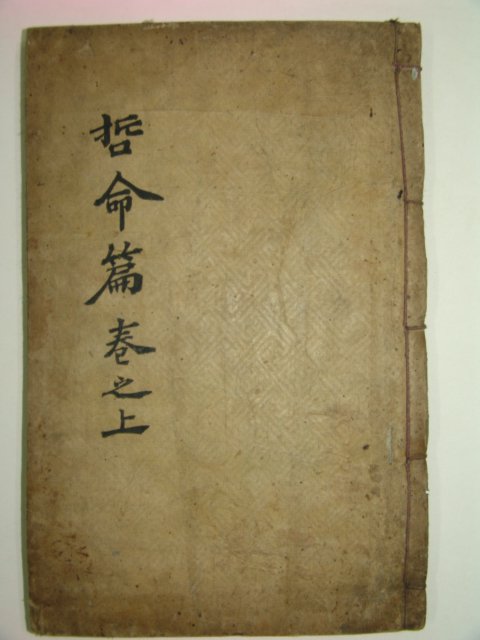 哲命篇卷之上